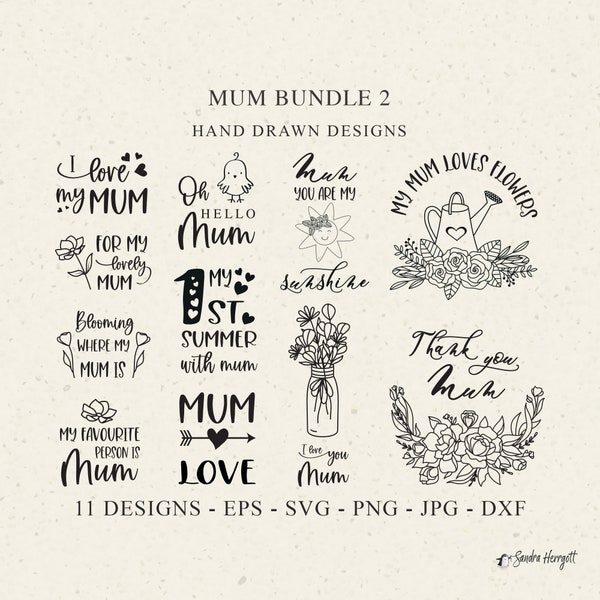 MUM BUNDLE 2
HAND DRAWN DESIGNS
I love
my MUM
FOR MY
lovely
MUM
Blooming
WHERE MY
MUM IS
MY FAVOURITE
PERSON IS
Mum
Oh
HELLO
Mum
1 MY
ST
SUMMER
with mum
MUM
LOVE
Mum
YOU ARE MY
sunshine
I love you
Mum
MY MUM LOVES FLOWERS
Thank you
Mum
11 DESIGNS - EPS - SVG - PNG - JPG - DXF
Sandra Herrgott